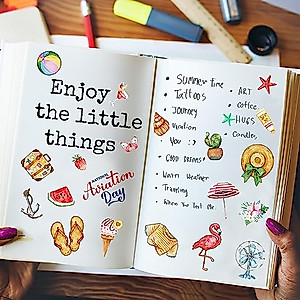 Enjoy
the little
things
NATIONAL
Aviation
Day
Summer time
Tattoos
Journey
You :)
GOOD DREAMS
Warm Weather
Traveling
ART
Coffee
HUGS
Candles